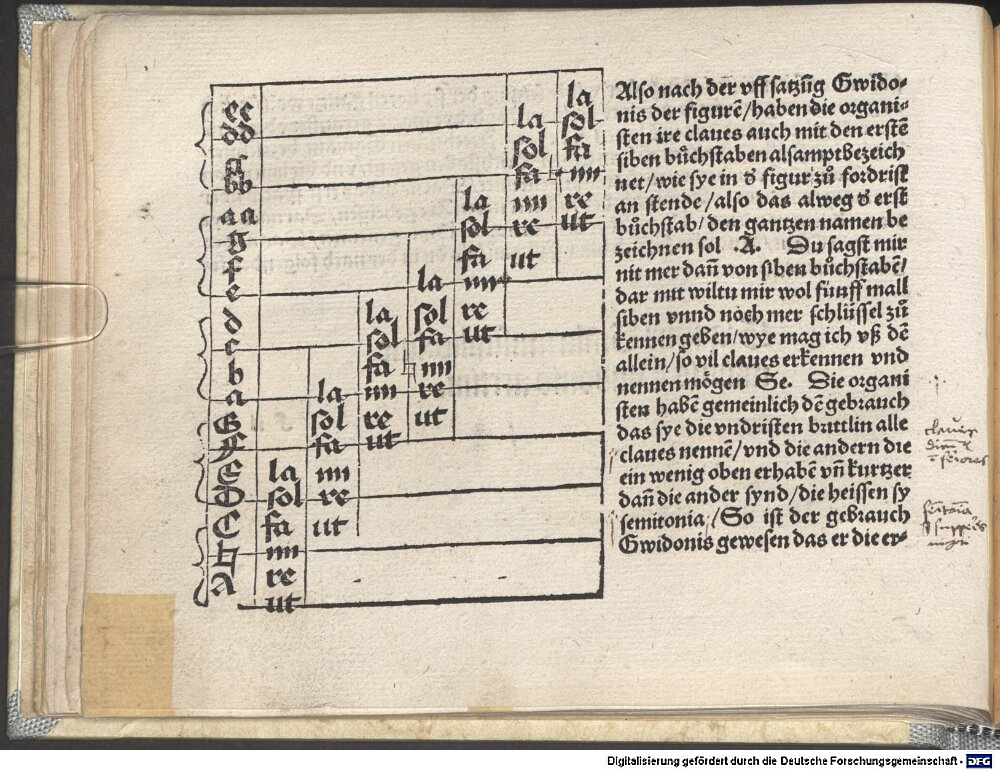 ee la
dd la sol
g sol fa
bb fa mi
aa la mi re
g sol re ut
f fa ut
e la mi
d la sol re
c sol fa ut
b fa mi
a la mi re
G sol re ut
F fa ut
E la mi
D sol re
C fa ut
♮ mi
A re
ut
Also nach der vff satzūg Gwido⸗
nis der figurē/haben die organi⸗
sten ire claues auch mit den erstē
siben bůchstaben alsampt bezeich
net/wie sye in d figur zů fordrist
an stende/also das alweg d erst
bůchstab/den gantzen namen be
zeichnen sol .A. Du sagst mir
nit mer dañ von siben bůchstabē/
dar mit wiltu mir wol fünff mall
siben vnnd noch mer schlüssel zů
kennen geben/wye mag ich vß dē
allein/so vil claues erkennen vnd
nennen mögen Se. Die organi
sten habē gemeinlich dē gebrauch
das sye die vndristen brittlin alle
claues nennē/vnd die andern die
ein wenig oben erhabē vñ kurtzer
dañ die ander synd/die heissen sy
semitonia/So ist der gebrauch
Gwidonis gewesen das er die er⸗
Digitalisierung gefördert durch die Deutsche Forschungsgemeinschaft - DFG